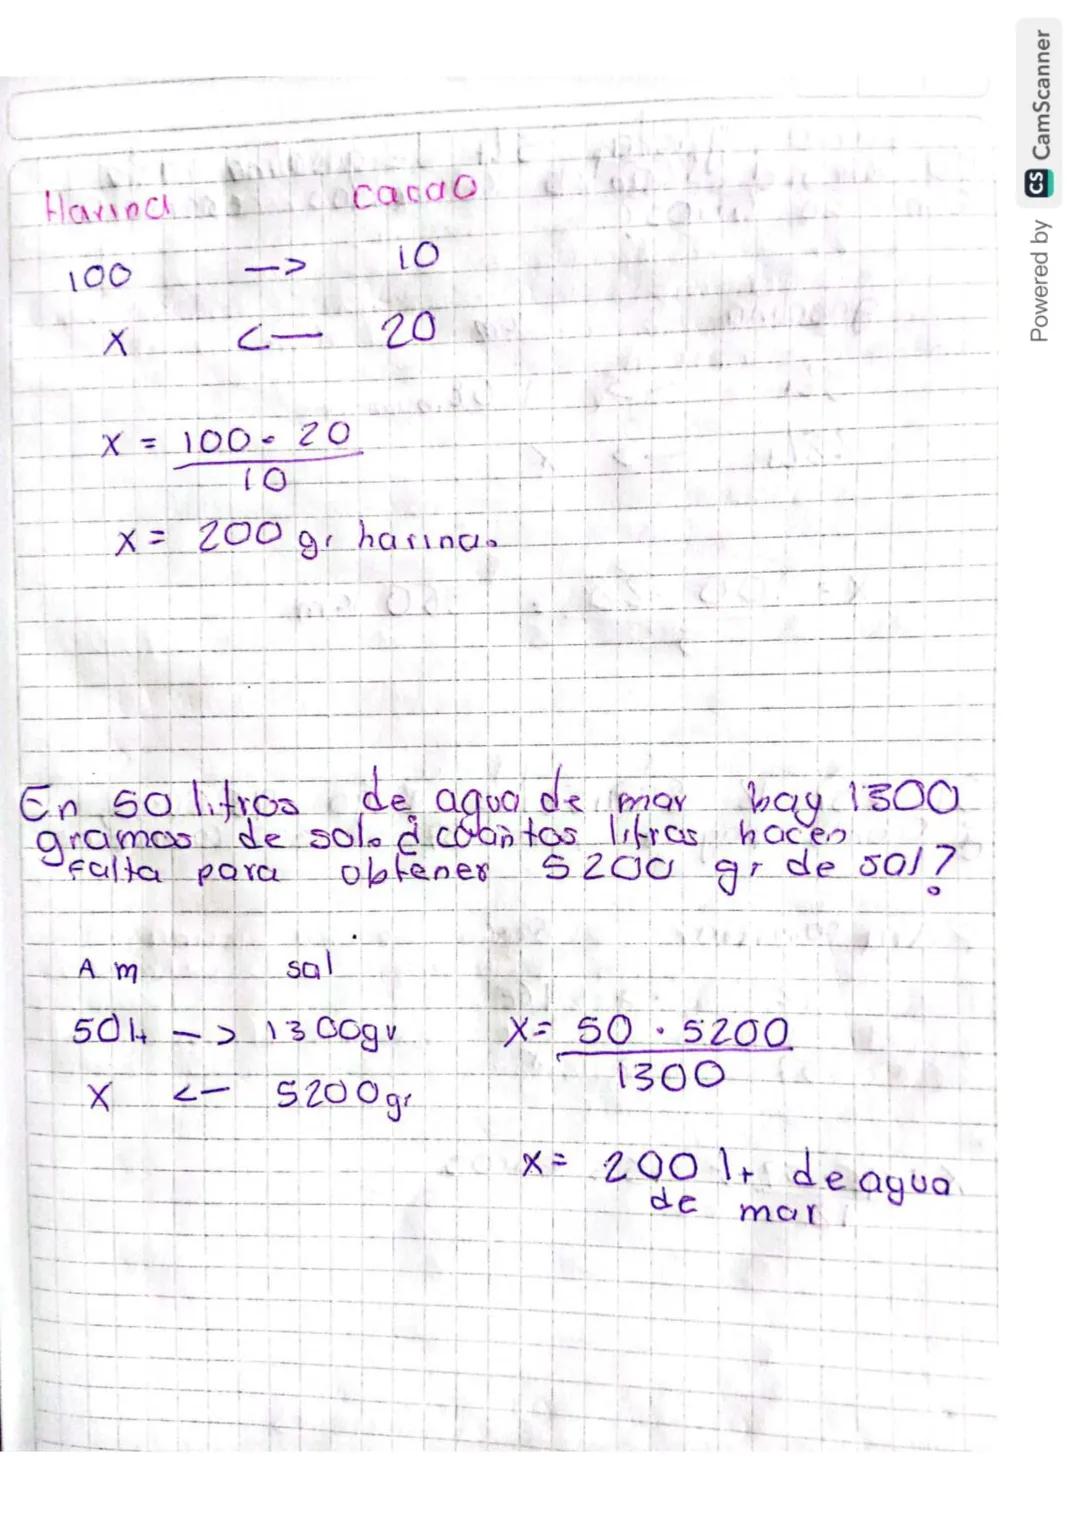 Harina cacao
100 --> 10
X <-- 20
X = 100 · 20
10
X = 200 gr harina.
En 50 litros de agua de mar hay 1300
gramos de sal. ¿cuántos litros hacen
falta para obtener 5200 gr de sal?
A m sal
50 lt --> 1300gr
X <-- 5200gr
X = 50 · 5200
1300
X = 200 lt de agua
de mar
Powered by CS CamScanner